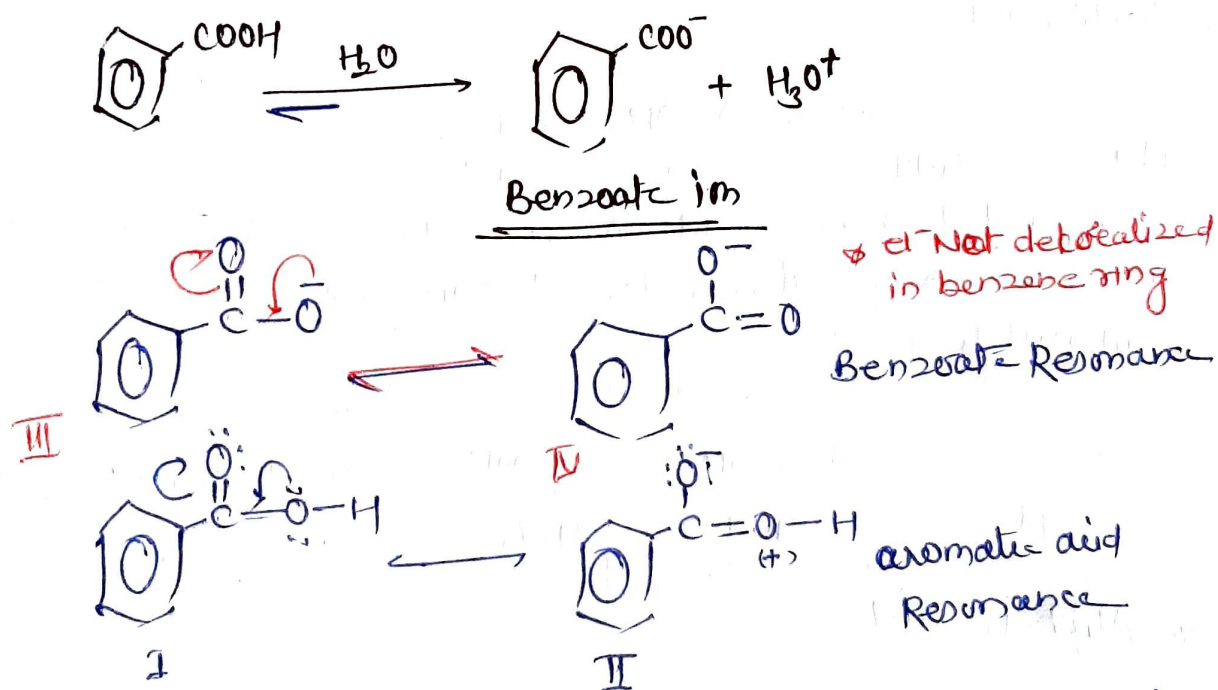 COOH H2O COO⁻ + H3O⁺
Benzoate ion
* el⁻ Not delocalized
in benzene ring
O O⁻
C – O⁻ C = O
Benzoate Resonance
III IV
:O: :O⁻
C = O – H C = O – H
(+)
aromatic acid
Resonance
I II